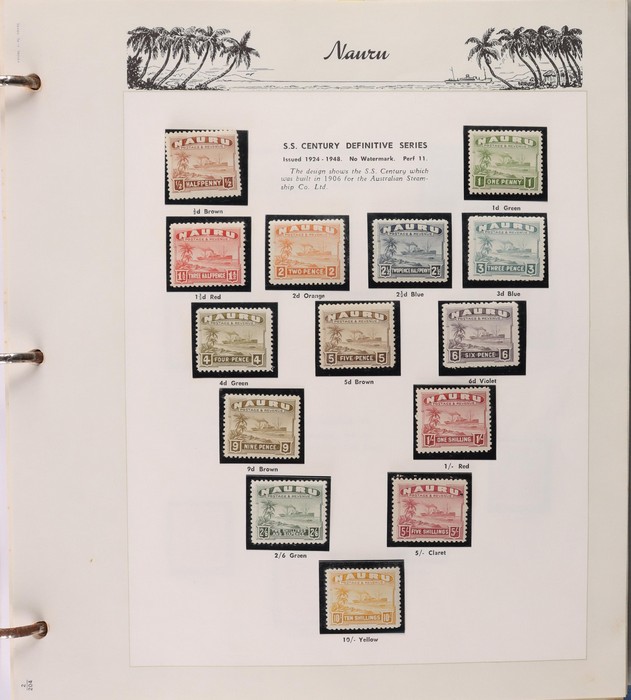 Nauru
S.S. CENTURY DEFINITIVE SERIES
Issued 1924 - 1948. No Watermark. Perf 11.
The design shows the S.S. Century which
was built in 1906 for the Australian Steam-
ship Co. Ltd.
NAURU
½ HALFPENNY ½
½d Brown
NAURU
POSTAGE & REVENUE
1 ONE PENNY 1
1d Green
NAURU
POSTAGE & REVENUE
1½ THREE HALFPENCE 1½
1½d Red
NAURU
POSTAGE & REVENUE
2 TWO PENCE 2
2d Orange
NAURU
POSTAGE & REVENUE
2½ TWOPENCE HALFPENNY 2½
2½d Blue
NAURU
POSTAGE & REVENUE
3 THREE PENCE 3
3d Blue
NAURU
POSTAGE & REVENUE
4 FOUR PENCE 4
4d Green
NAURU
POSTAGE & REVENUE
5 FIVE PENCE 5
5d Brown
NAURU
POSTAGE & REVENUE
6 SIX PENCE 6
6d Violet
NAURU
POSTAGE & REVENUE
9 NINE PENCE 9
9d Brown
NAURU
POSTAGE & REVENUE
1/- ONE SHILLING 1/-
1/- Red
NAURU
POSTAGE & REVENUE
2/6 2/6
2/6 Green
NAURU
POSTAGE & REVENUE
5/- FIVE SHILLINGS 5/-
5/- Claret
NAURU
POSTAGE & REVENUE
10/- TEN SHILLINGS 10/-
10/- Yellow